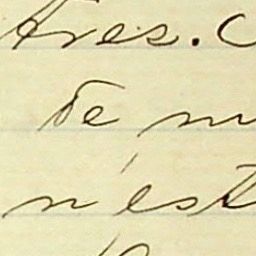 tres. C
de m
n'est